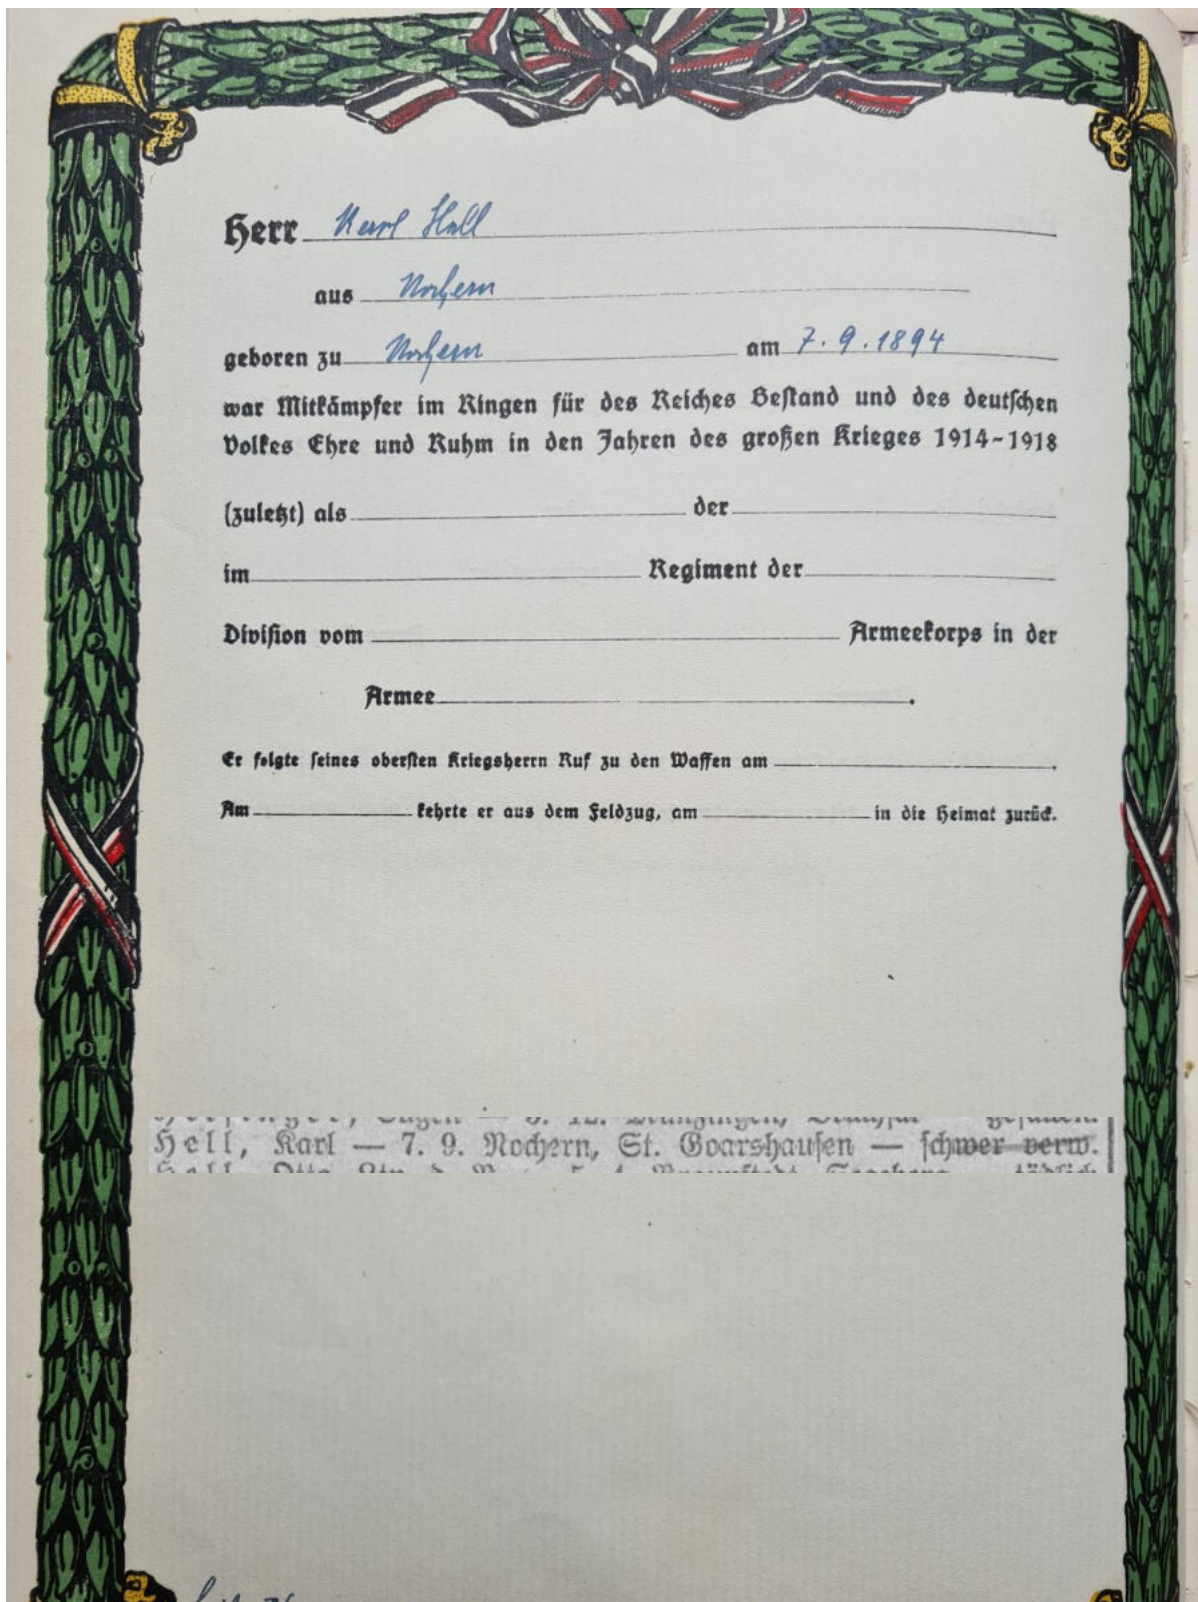 Herr Karl Hell
aus Nochern
geboren zu Nochern am 7.9.1894
war Mitkämpfer im Ringen für des Reiches Bestand und des deutschen
Volkes Ehre und Ruhm in den Jahren des großen Krieges 1914-1918
(zuletzt) als der
im Regiment der
Division vom Armeekorps in der
Armee .
Er folgte seines obersten Kriegsherrn Ruf zu den Waffen am .
Am kehrte er aus dem Feldzug, am in die Heimat zurück.
Hell, Karl — 7. 9. Nochern, St. Goarshausen — schwer verw.